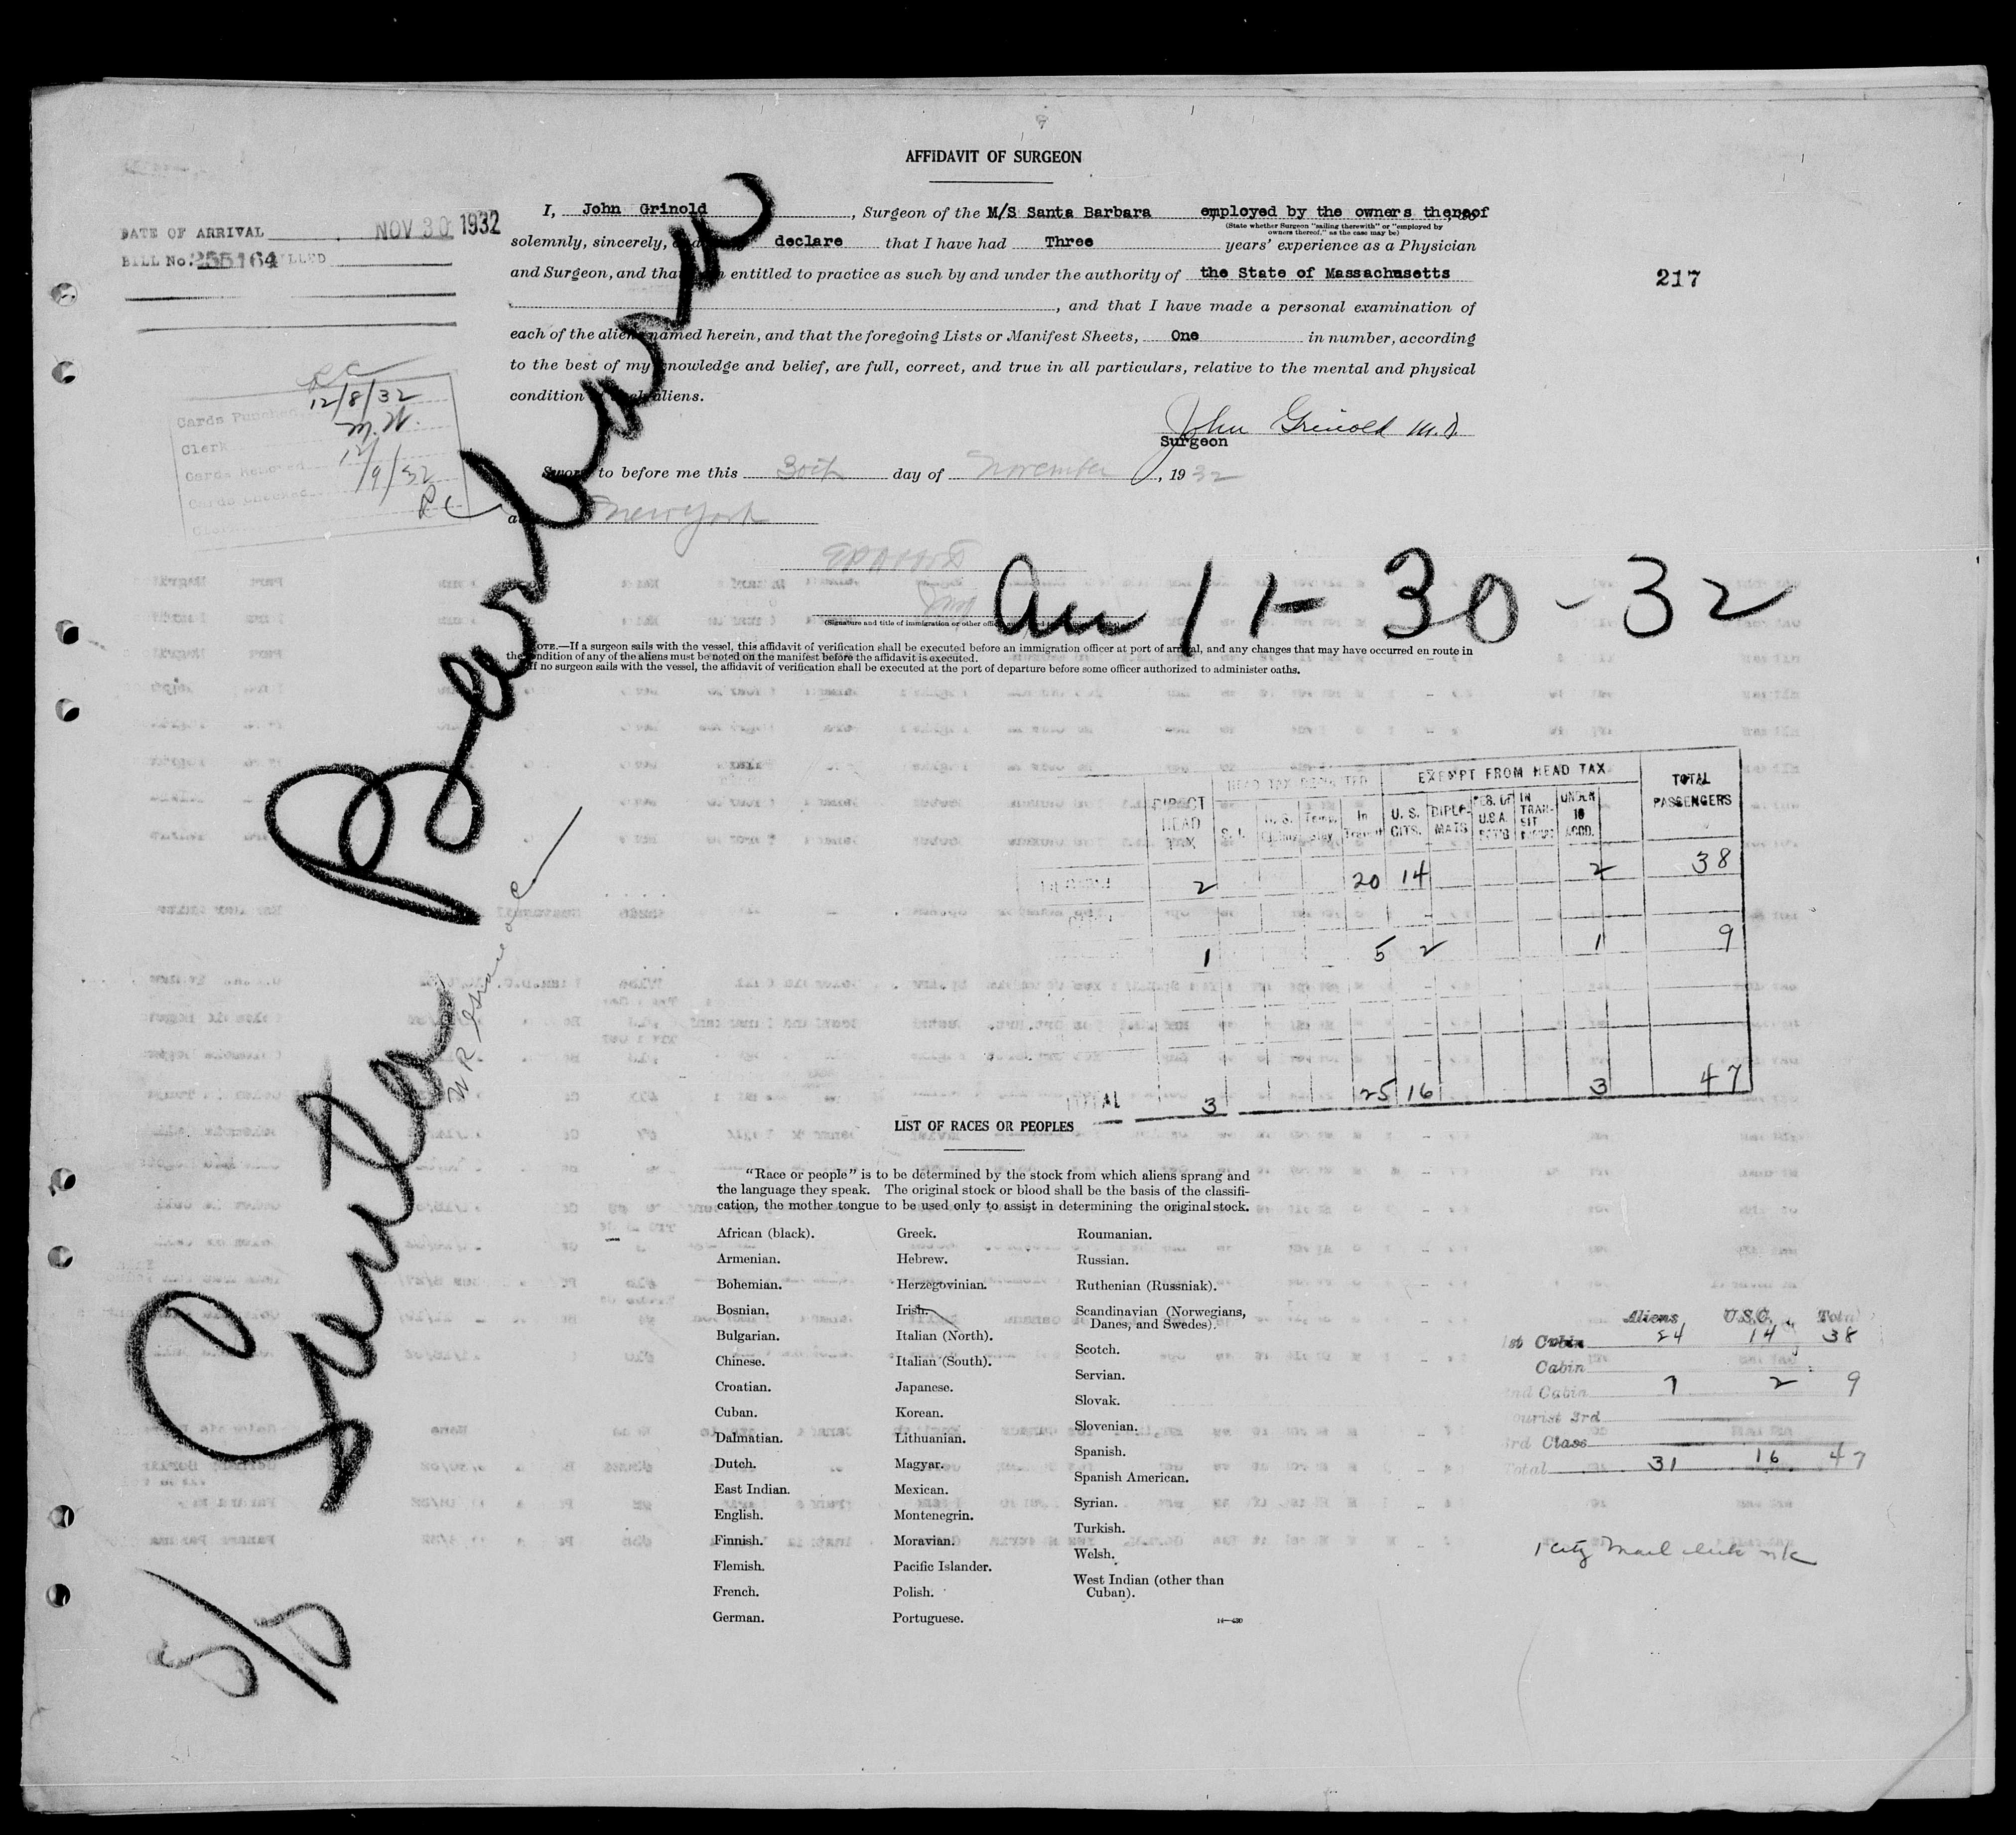 AFFIDAVIT OF SURGEON
I, John Grinold, Surgeon of the M/S Santa Barbara employed by the owners thereof
(State whether Surgeon "sailing therewith" or "employed by
owners thereof," as the case may be)
solemnly, sincerely, declare that I have had Three years' experience as a Physician
and Surgeon, and that entitled to practice as such by and under the authority of the State of Massachusetts
, and that I have made a personal examination of
each of the aliens named herein, and that the foregoing Lists or Manifest Sheets, One in number, according
to the best of my knowledge and belief, are full, correct, and true in all particulars, relative to the mental and physical
condition of such aliens.
John Grinold M.D.
Surgeon
Sworn to before me this 30th day of November, 1932
at New York
(Signature and title of immigration or other
DATE OF ARRIVAL NOV 30 1932
BILL No. 255164 FILLED
217
RC
Cards Punched 12/8/32
Clerk M.W.
Cards Removed 12/9/32
Cards Checked
RC
Arr 11-30-32
S/S Santa Barbara
W R Grace & Co
NOTE.—If a surgeon sails with the vessel, this affidavit of verification shall be executed before an immigration officer at port of arrival, and any changes that may have occurred en route in
the condition of any of the aliens must be noted on the manifest before the affidavit is executed.
If no surgeon sails with the vessel, the affidavit of verification shall be executed at the port of departure before some officer authorized to administer oaths.
DIRECT HEAD TAX
HEAD TAX
S. I.
Temp. Stay
In Transit
EXEMPT FROM HEAD TAX
U. S. CITS.
DIPLO-MATS
RES. OF U.S.A. RET'G
IN TRAN-SIT
UNDER 16 ACCD.
TOTAL PASSENGERS
2 20 14 2 38
1 5 2 1 9
TOTAL 3 25 16 3 47
LIST OF RACES OR PEOPLES
"Race or people" is to be determined by the stock from which aliens sprang and
the language they speak. The original stock or blood shall be the basis of the classifi-
cation, the mother tongue to be used only to assist in determining the original stock.
African (black).
Armenian.
Bohemian.
Bosnian.
Bulgarian.
Chinese.
Croatian.
Cuban.
Dalmatian.
Dutch.
East Indian.
English.
Finnish.
Flemish.
French.
German.
Greek.
Hebrew.
Herzegovinian.
Irish.
Italian (North).
Italian (South).
Japanese.
Korean.
Lithuanian.
Magyar.
Mexican.
Montenegrin.
Moravian.
Pacific Islander.
Polish.
Portuguese.
Roumanian.
Russian.
Ruthenian (Russniak).
Scandinavian (Norwegians,
Danes, and Swedes).
Scotch.
Servian.
Slovak.
Slovenian.
Spanish.
Spanish American.
Syrian.
Turkish.
Welsh.
West Indian (other than
Cuban).
14—430
Aliens U.S.C. Total
1st Cabin 24 14 38
Cabin
2nd Cabin 7 2 9
Tourist 3rd
3rd Class
Total 31 16 47
1 City Mail clerk